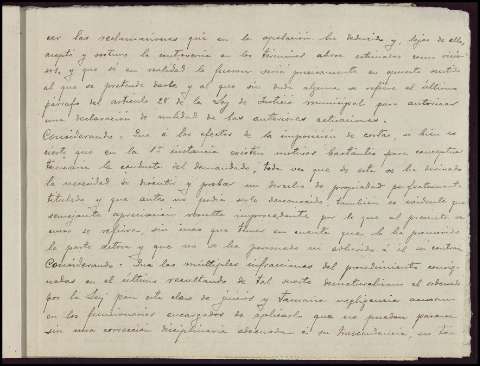 cer las reclamaciones que en la apelación ha deducido y, lejos de ello,
aceptó y sostuvo la controversia en los términos ahora estimados como vicio
sos, y que si en realidad lo fueran sería precisamente en aquella sentido
al que se pretende darlo, y al que sin duda alguna se refiere el último
párrafo del artículo 28 de la Ley de Justicia municipal para autorizar
una declaración de nulidad de las anteriores actuaciones.
Considerando.- Que a los efectos de la imposición de costas, si bien es
cierto que en la 1ª instancia existen motivos bastantes para conceptuar
temeraria la conducta del demandado, toda vez que de ella se ha derivado
la necesidad de discutir y probar un derecho de propiedad perfectamente
titulado y que antes no podía serle desconocido, también es evidente que
semejante apreciación resulta improcedente por lo que al presente re
curso se refiere, sin más que tener en cuenta que lo ha promovido
la parte actora y que no se ha personado ni adherido á él su contraria
Considerando.- Que las múltiples infracciones del procedimiento consig
nadas en el último resultando de tal suerte desnaturalizan el ordenado
por la Ley para esta clase de juicios y tamaña negligencia acusan
en los funcionarios encargados de aplicarlo que no pueden pasarse
sin una corrección disciplinaria adecuada á su trascendencia, en